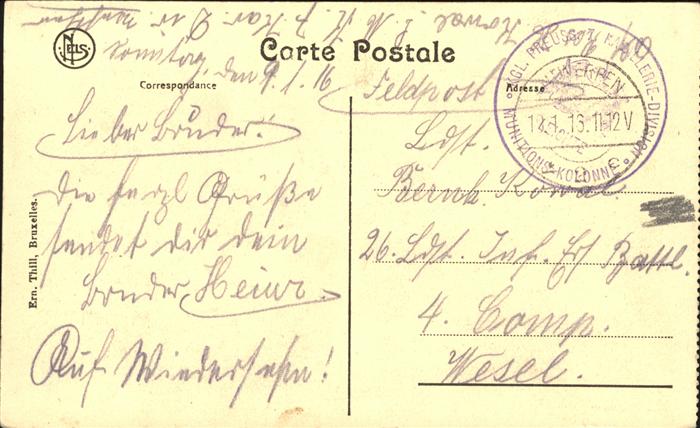 NELS
Carte Postale
Correspondance
Adresse
Sonntag, den 9.1.16
Lieber Bruder!
Die herzl Grüße
sendet dir dein
Bruder Heinr.
Auf Wiedersehn!
Ern. Thill, Bruxelles.
Feldpost
KGL. PREUSS. KAVALLERIE-DIVISION
MUNITIONS-KOLONNE
11-12V
Ldst.
Bernh.
26. Ldst. Inf. Ers Battl.
4. Comp.
Wesel.